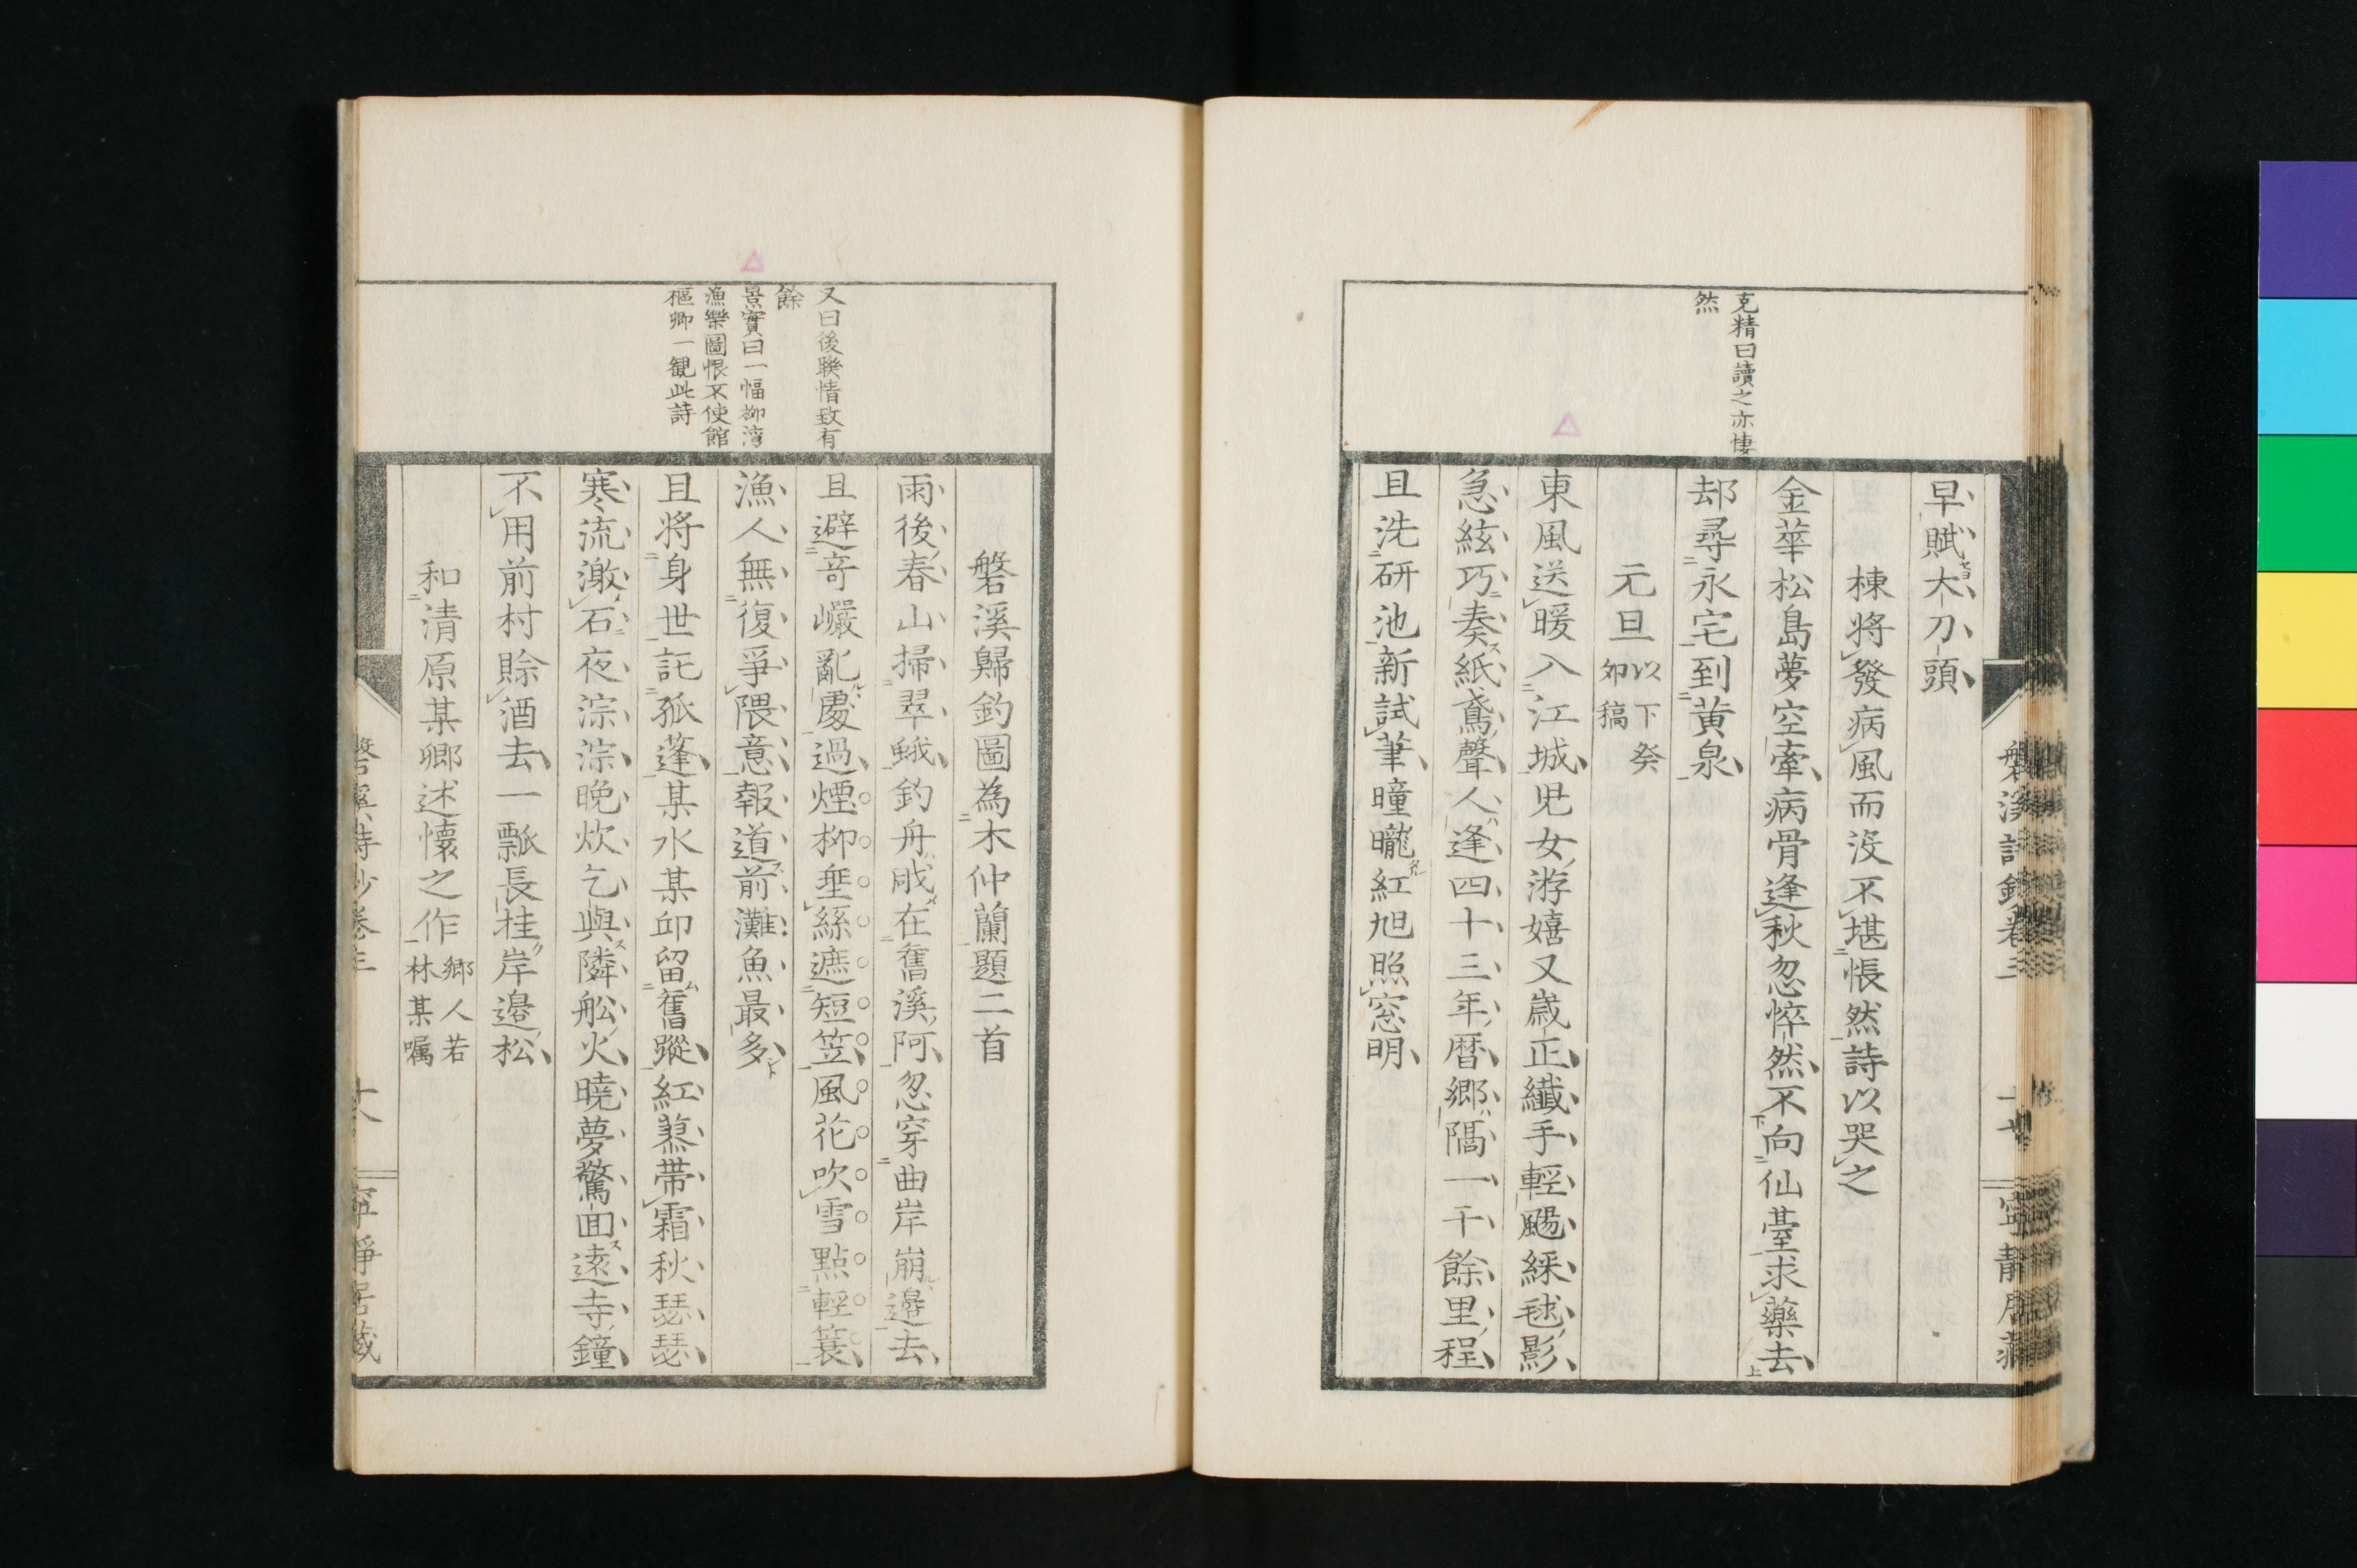 克精曰讀之亦悽
然
早賦大刀頭
棟將發病風而沒不堪悵然詩以哭之
金華松島夢空牽病骨逢秋忽悴然不向仙臺求藥去
却尋永宅到黃泉
元旦以下癸
卯稿
東風送暖入江城兒女游嬉又歲正纖手輕颺綵毬影
急絃巧奏紙鳶聲人逢四十三年曆鄉隔一千餘里程
且洗研池新試筆曈曨紅旭照窓明
又曰後聯情致有
餘
景實曰一幅柳灣
漁樂圖恨不使館
樞卿一觀此詩
磐溪歸釣圖為木仲蘭題二首
雨後春山掃翠蛾釣舟戙在舊溪阿忽穿曲岸崩邊去
且避奇巖亂處過煙柳埀絲遮短笠風花吹雪點輕蓑
漁人無復爭隈意報道前灘魚最多
且將身世託孤蓬某水某邱留舊蹤紅慕帶霜秋瑟瑟
寒流激石夜淙淙晚炊乞與隣舩火曉夢驚回遠寺鐘
不用前村賒酒去一瓢長挂岸邉松
和清原某鄉述懷之作鄉人若
林某囑
磐溪詩鈔卷三
十八
寧靜居藏